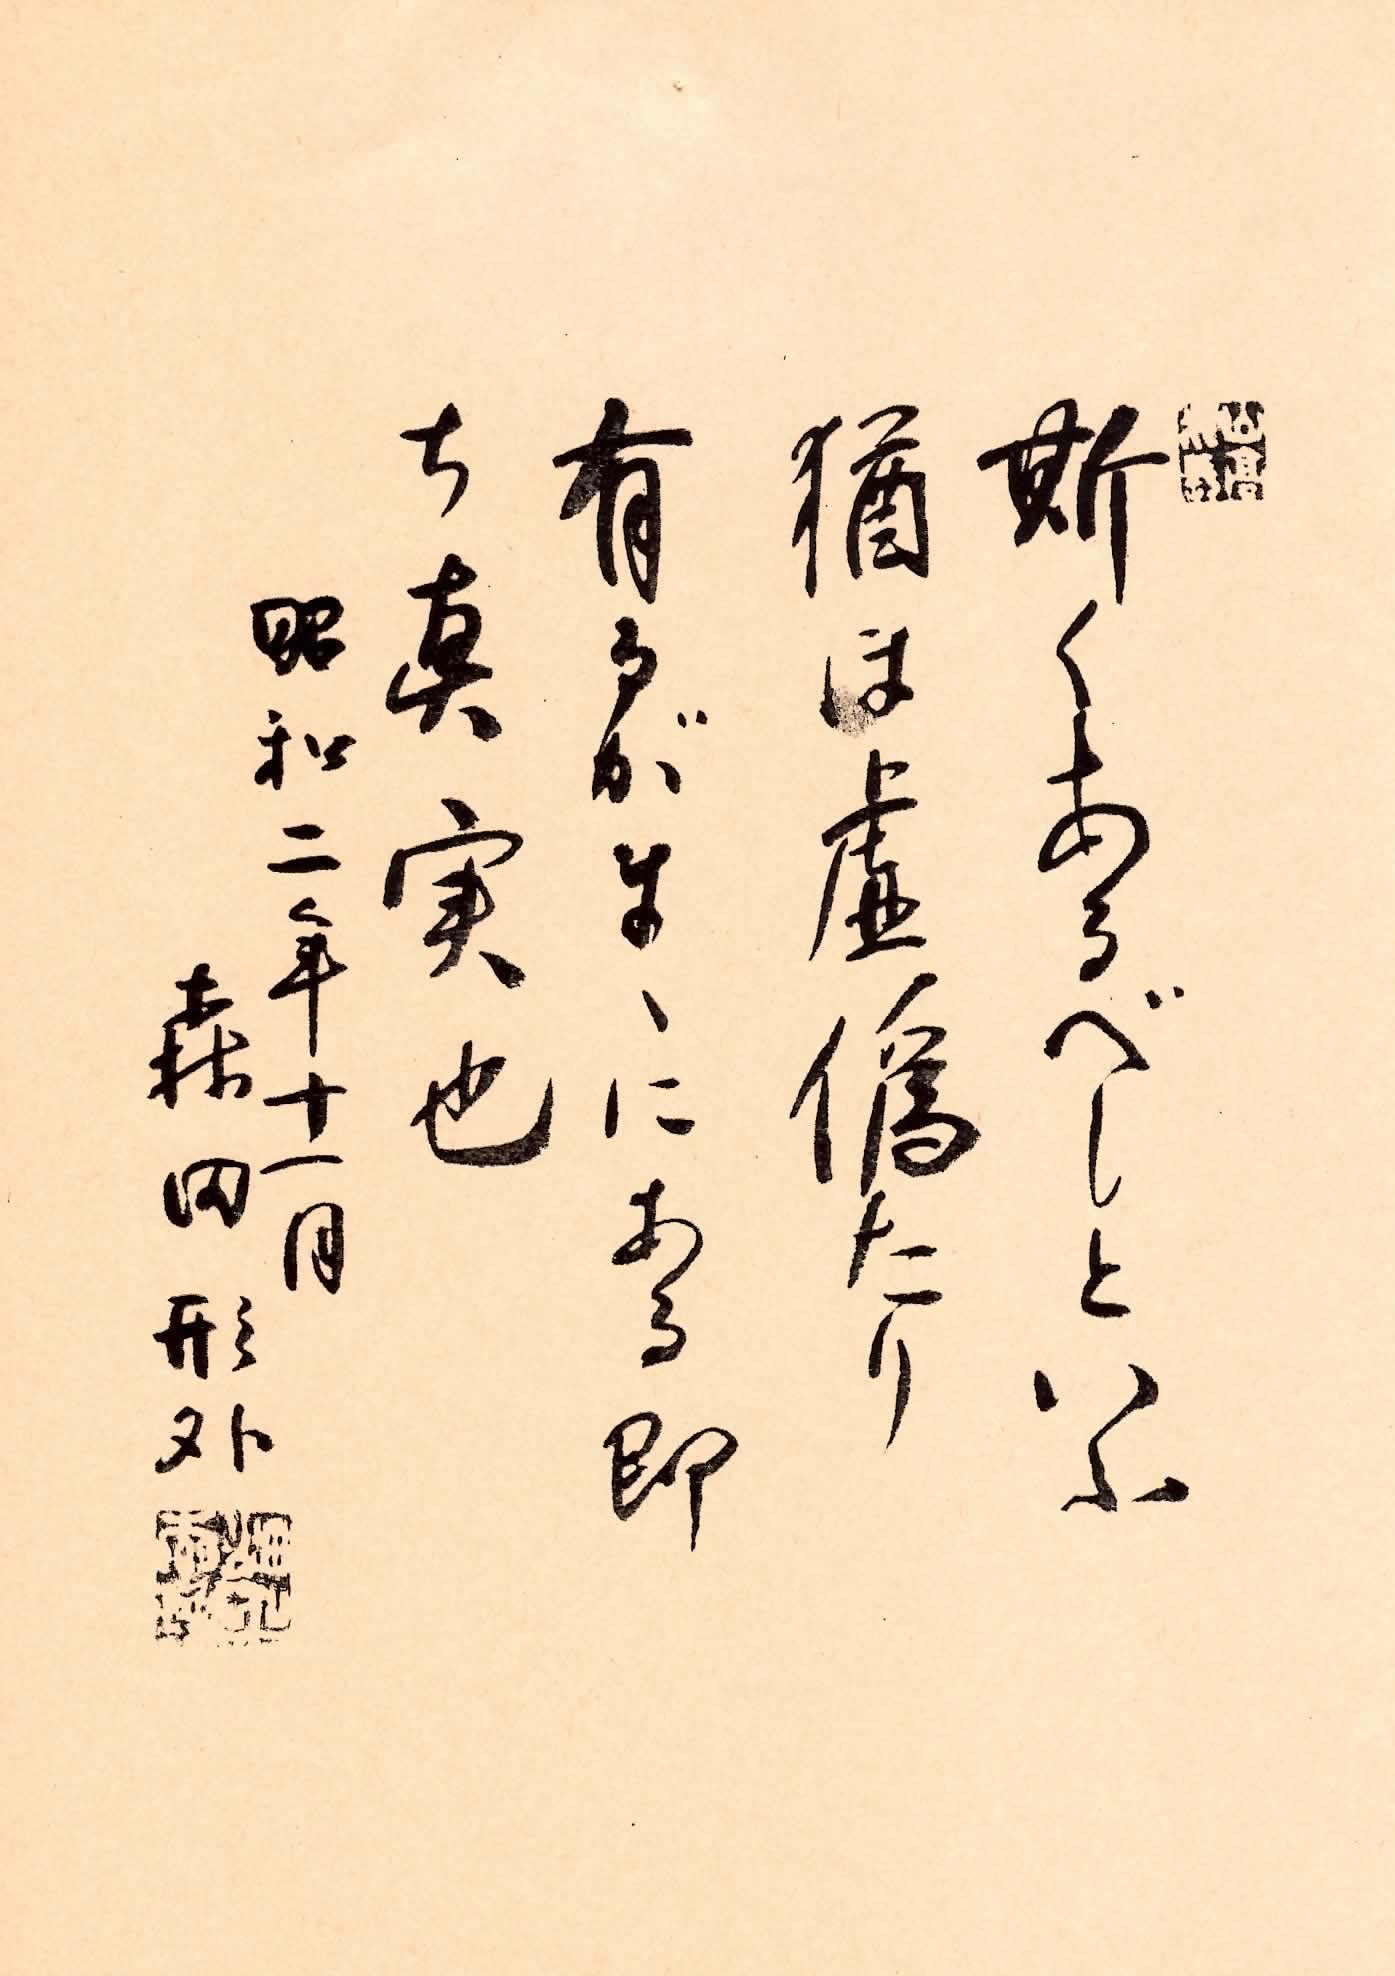 斯くあるべしといふ
猶ほ虚偽たり
有るがまゝにある即
ち真実也
昭和二年十一月
森田形外